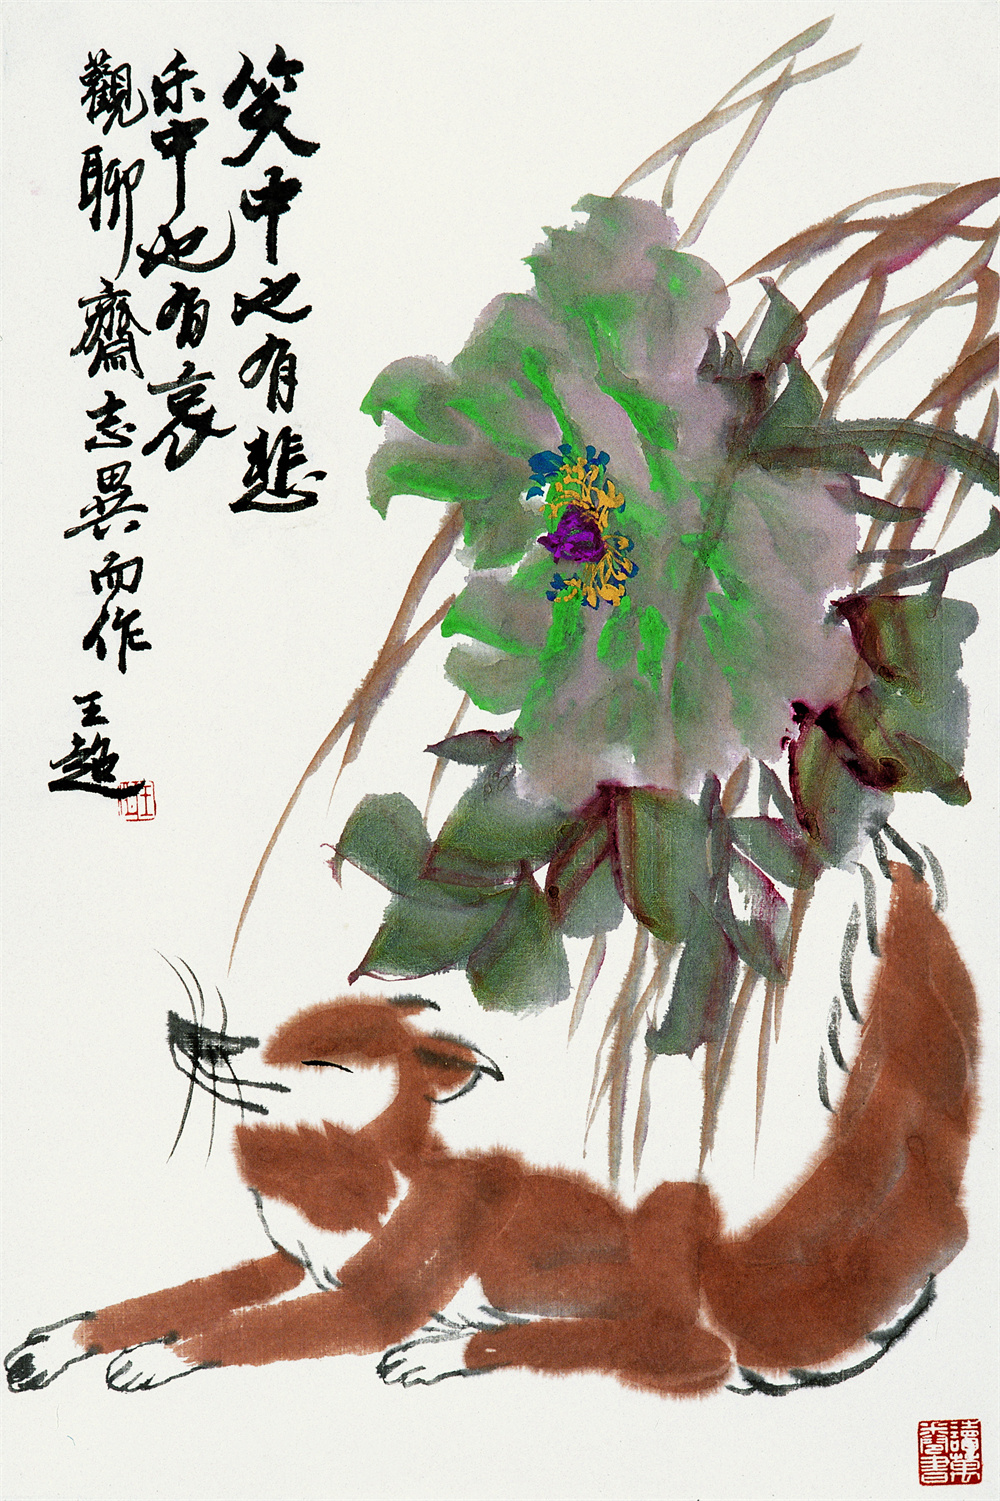 笑中之有悲
乐中也有哀
觀聊齋志異而作
王超
讀萬卷書